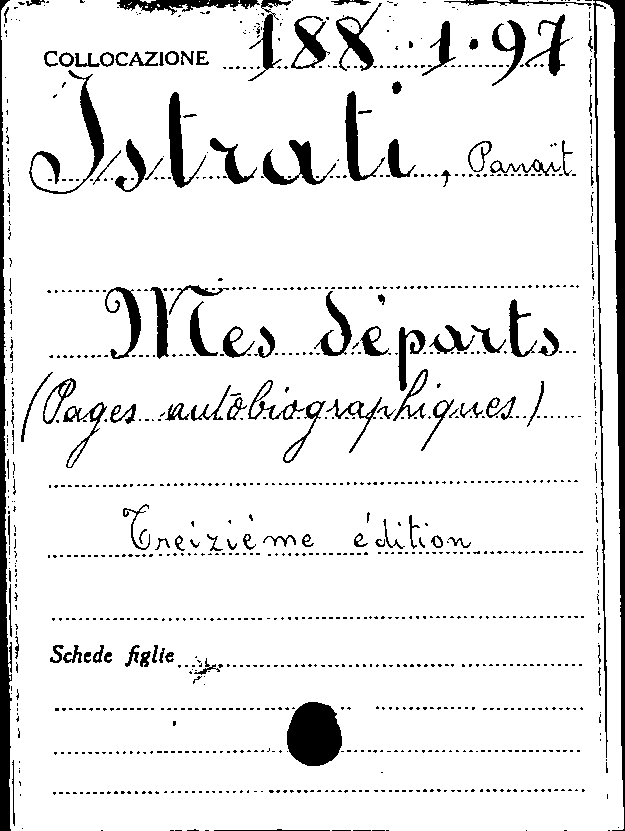 COLLOCAZIONE 188.1.97
Istrati, Panaït
Mes départs
(Pages autobiographiques)
Treiziéme édition
Schede figlie